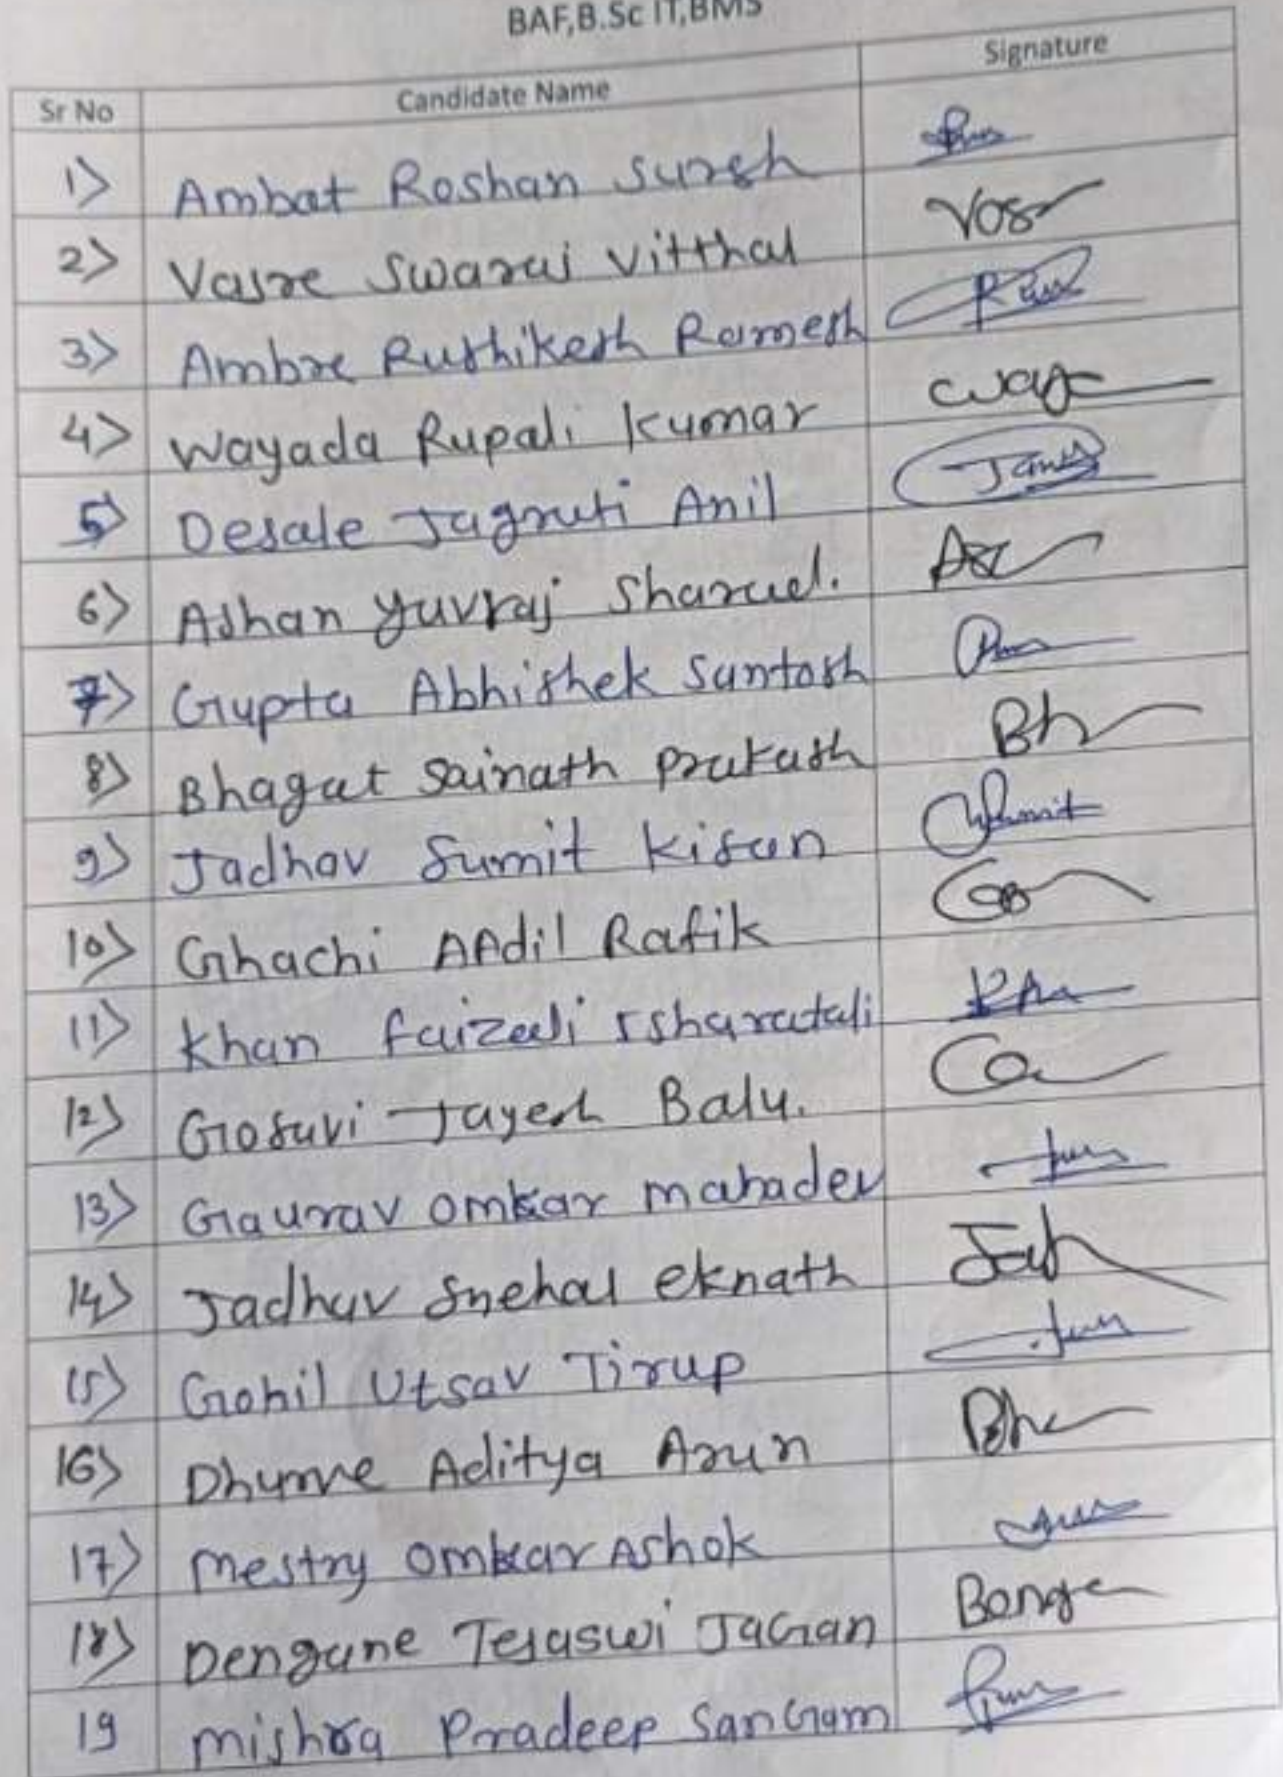 BAF,B.Sc IT,BMS
Sr No Candidate Name Signature
1) Ambat Roshan Suresh
2) Vasre Swaraj Vitthal Vas
3) Ambre Rushikesh Ramesh
4) Wayada Rupali Kumar Way
5) Desale Jagruti Anil
6) Adhan Yuvraj Sharad.
7) Gupta Abhishek Santosh
8) Bhagat Sainath Prakash Bh
9) Jadhav Sumit Kisan
10) Ghachi AAdil Rafik
11) Khan Faizali Isharatali
12) Gosavi Jayesh Balu.
13) Gaurav Omkar Mahadev
14) Jadhav Snehal Eknath
15) Gohil Utsav Tirup
16) Dhurve Aditya Arun
17) Mestry Omkar Ashok
18) Dengane Tejaswi JaGan
19 Mishra Pradeep SanGam